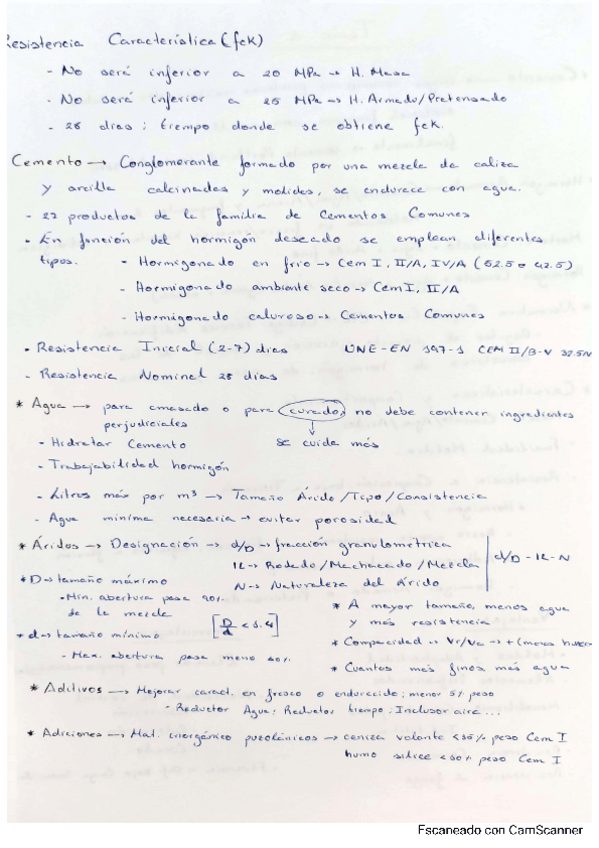 Resistencia Característica (fck)
- No será inferior a 20 MPa → H. Masa
- No será inferior a 25 MPa → H. Armado/Pretensado
- 28 dias: tiempo donde se obtiene fck.
Cemento → Conglomerante formado por una mezcla de caliza
y arcilla calcinadas y molidas, se endurece con agua.
- 27 productos de la familia de Cementos Comunes
- En función del hormigón deseado se emplean diferentes
tipos. - Hormigonado en frio → Cem I, II/A, IV/A (52.5 o 42.5)
- Hormigonado ambiente seco → Cem I, II/A
- Hormigonado caluroso → Cementos Comunes
- Resistencia Inicial (2-7) dias UNE-EN 197-1 CEM II/B-V 32.5N
- Resistencia Nominal 28 dias
* Agua → para amasado o para curado, no debe contener ingredientes
perjudiciales ↓
- Hidratar Cemento se cuida más
- Trabajabilidad hormigón
- Litros máx por m³ → Tamaño Árido/Tipo/Consistencia
- Agua mínima necesaria → evitar porosidad
* Áridos → Designación → d/D → fracción granulometrica
IL → Rodado/Machacado/Mezcla d/D - IL - N
N → Naturaleza del Árido
* D → tamaño máximo
- Min. abertura pasa 90%
de la mezcla
* d → tamaño mínimo [D/d < 1.4]
- Max. abertura pasa menos 10%
* A mayor tamaño, menos agua
y más resistencia
* Compacidad → Vr/Va → + (menos
* Cuantos más finos más agua
* Aditivos → Mejorar caract. en fresco o endurecido; menor 5% peso
- Reductor Agua; Reductor tiempo; Inclusor aire...
* Adiciones → Mat. inorgánico puzolánicos → ceniza volante <35% peso Cem I
humo silice <10% peso Cem I
Escaneado con CamScanner